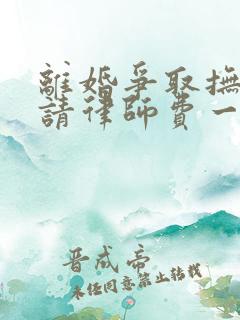 離婚爭取撫
請律師費一
晋成帝
未任同意禁止转载